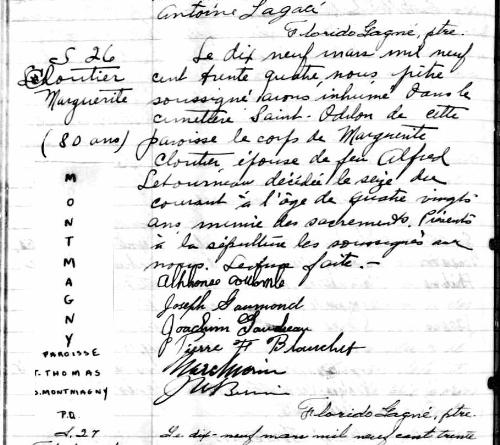 Antoine Lagacé
Florido Gagné, ptre.
S 26
Cloutier
Marguerite
(80 ans)
Le dix neuf mars mil neuf
cent trente quatre nous prêtre
soussigné avons inhumé dans le
cimetière Saint-Odilon de cette
paroisse le corps de Marguerite
Cloutier épouse de feu Alfred
Letourneau décédée le seize du
courant à l'âge de quatre vingts
ans munie des sacrements. Présents
à la sépulture les soussignés avec
nous. Lecture faite.-
Alphonse
Joseph Gaumond
Joachim Gaudreau
Pierre Blanchet
Marc Morin
Florido Gagné, ptre.
MONTMAGNY
PAROISSE
T. THOMAS
S. MONTMAGNY
P.Q.
S. 27
Le dix-neuf mars mil neuf cent trente